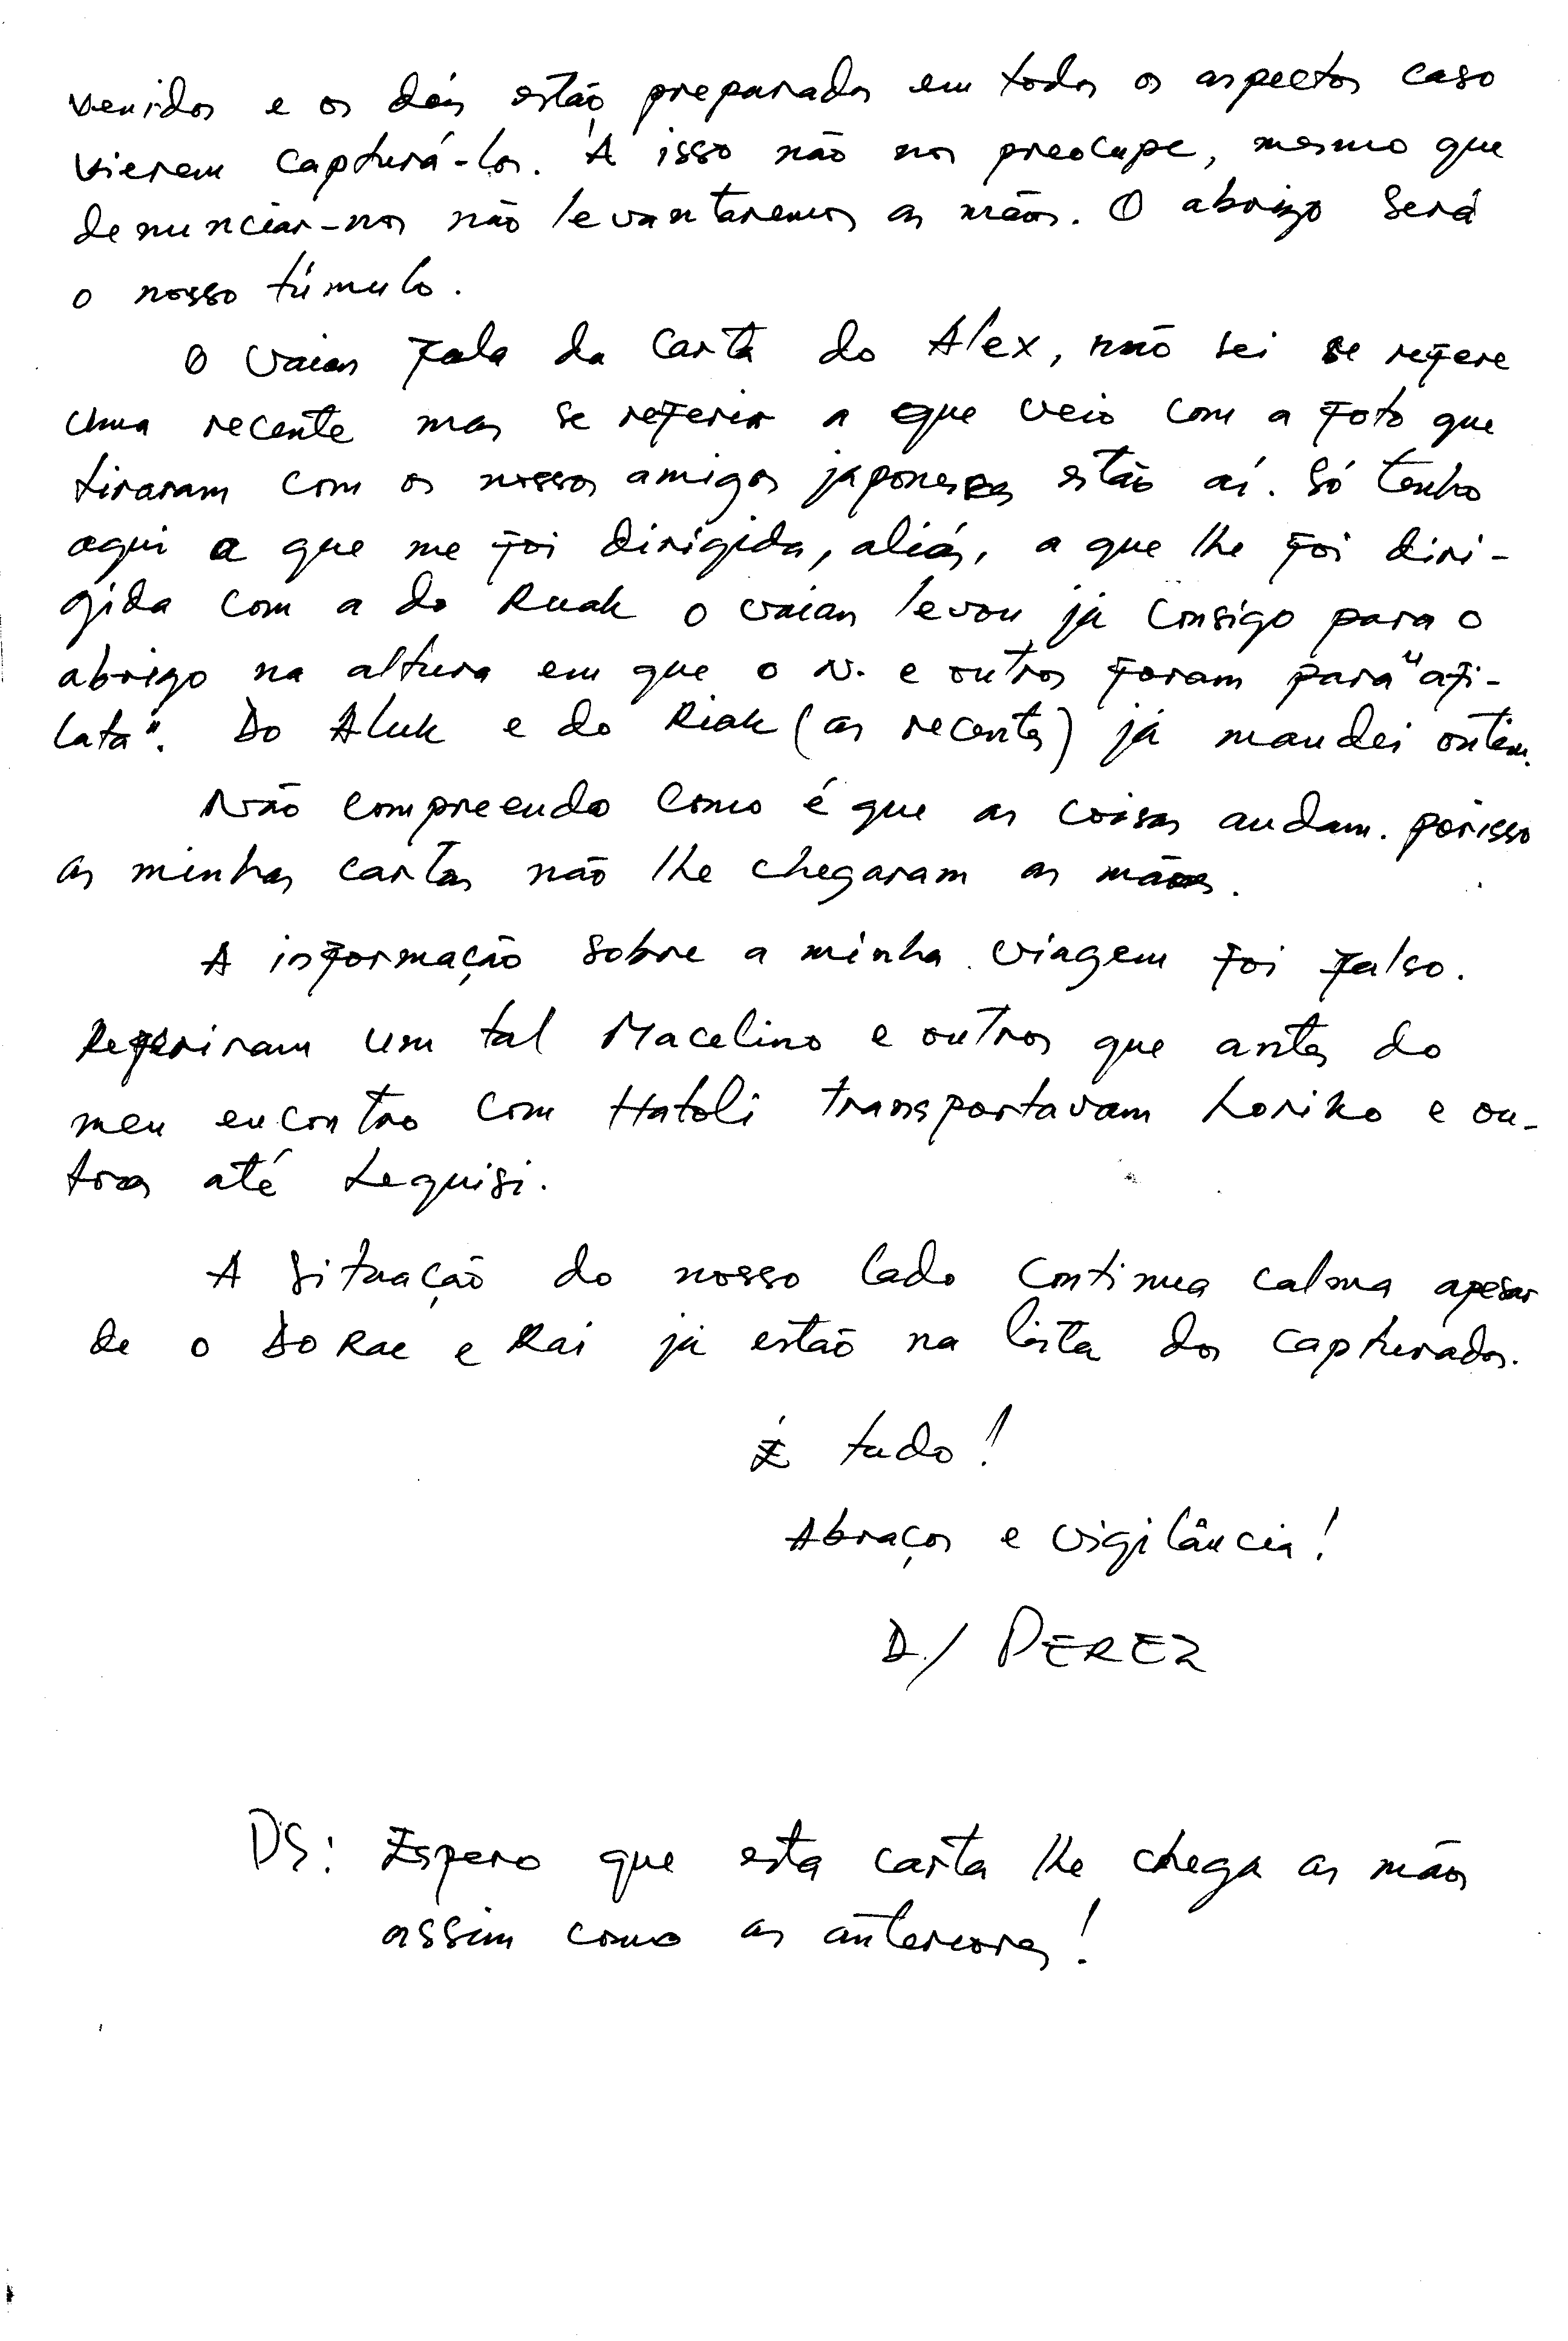 venidos e os dois estão preparados em todos os aspectos caso
vierem capturá-los. A isso não nos preocupe, mesmo que
denunciar-nos não levantaremos as mãos. O abrigo será
o nosso túmulo.
O Vaian fala da carta do Alex, não sei se refere
uma recente mas se referir a que veio com a foto que
tiraram com os nossos amigos japoneses estão aí. Só tenho
aqui a que me foi dirigida, aliás, a que lhe foi diri-
gida com a do Ruak o Vaian levou já consigo para o
abrigo na altura em que o N. e outros foram para "afi-
lata". Do Aluk e do Riak (as recentes) já mandei ontem.
Não compreendo como é que as coisas andam. porisso
as minhas cartas não lhe chegaram as mãos.
A informação sobre a minha viagem foi falso.
Referiram um tal Macelino e outros que antes do
meu encontro com Hatoli transportavam Loriko e ou-
tros até Lequisi.
A situação do nosso lado continua calma apesar
de o Do Rae e Rai já estão na lista dos capturados.
É tudo!
Abraços e vigilância!
D/ PEREZ
DS: Espero que esta carta lhe chega as mãos
assim como as anteriores!